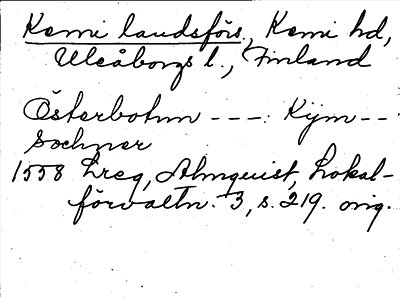 Kemi landsförs., Kemi hd,
Uleåborgs l., Finland
Österbothn - - -. Kijm - -
Sochner
1558 Lreg, Almquist, Lokal-
förvaltn. 3, s. 219. orig.